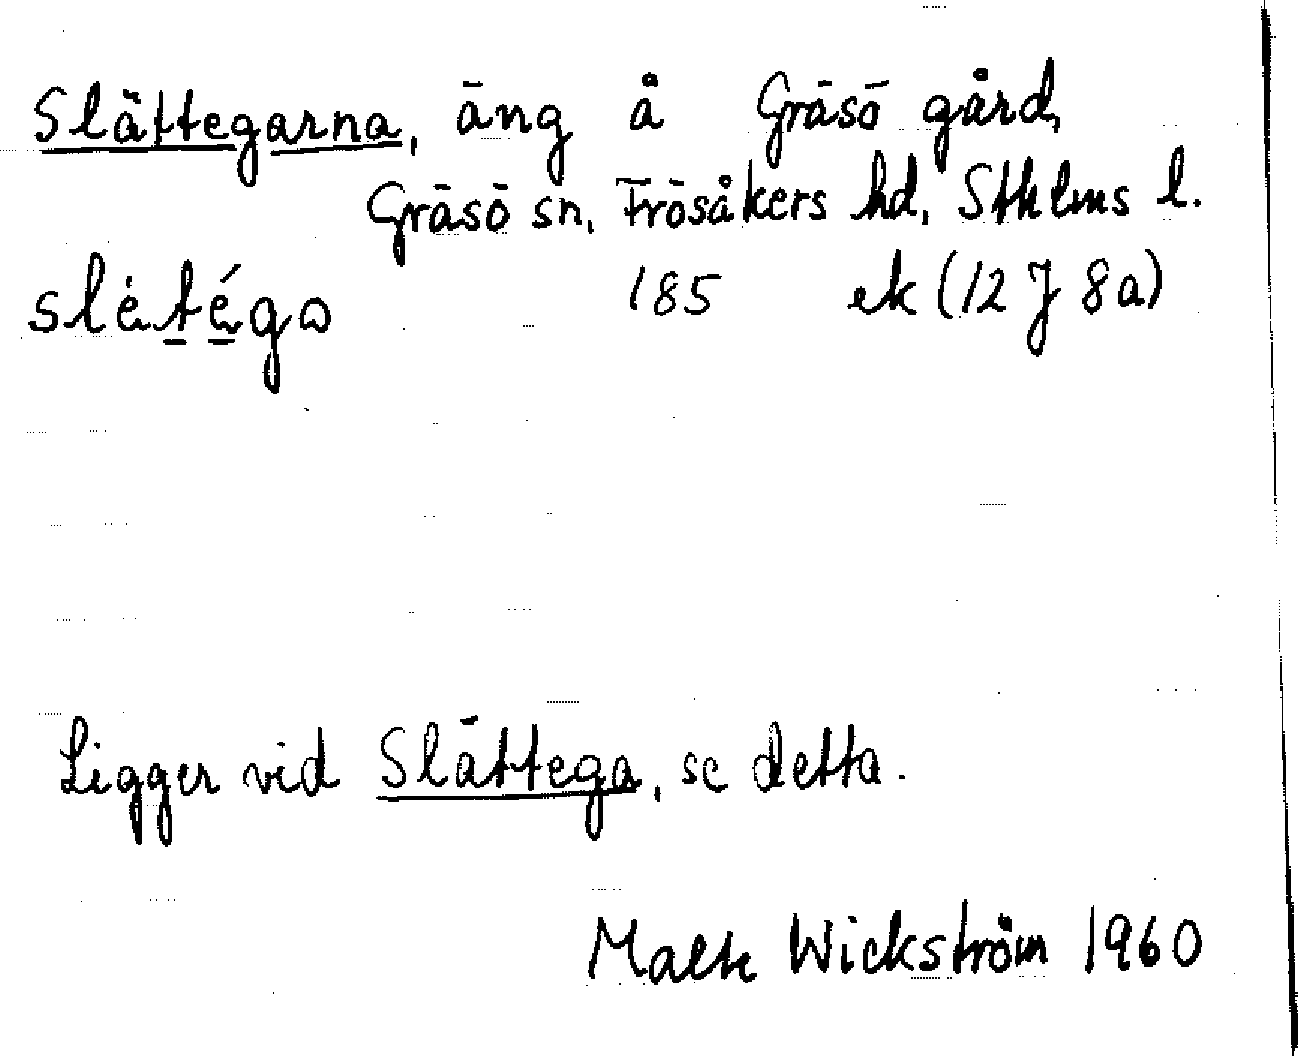 Slättegarna, äng å Gräsö gård,
Gräsö sn, Frösåkers hd, Sthlms l.
185 ek (12 J 8a)
Ligger vid Slättega, se detta.
Malte Wickström 1960